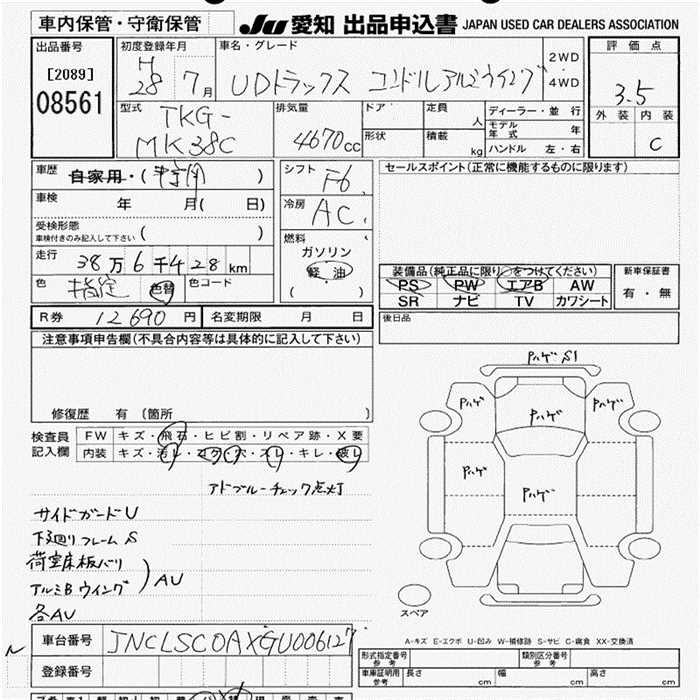 車内保管・守衛保管
JU 愛知 出品申込書 JAPAN USED CAR DEALERS ASSOCIATION
出品番号
[2089]
08561
初度登録年月
H
28 7月
車名・グレード
UDトラックス コンドル アルミウイング
2WD
・
4WD
評価点
3.5
外装 内装
C
型式
TKG-
MK38C
排気量
4670cc
ドア
形状
定員 人
積載 kg
ディーラー・並行
モデル年式 年
ハンドル 左・右
車歴
自家用・( )
車検 年 月( 日)
受検形態
車検付きのみ記入して下さい ( )
走行
38万6千428km
色 指定 色替 色コード
シフト F6
冷房 AC
燃料
ガソリン
軽油
( )
セールスポイント(正常に機能するものに限ります)
装備品(純正品に限り○をつけてください)
PS PW エアB AW
SR ナビ TV カワシート
新車保証書
有・無
R券 12690円 名変期限 月 日
後日品
注意事項申告欄(不具合内容等は具体的に記入して下さい)
修復歴 有 (箇所 )
検査員
記入欄
FW キズ・飛石・ヒビ割・リペア跡・X要
内装 キズ・汚レ・コゲ・穴・スレ・キレ・破レ
アドブルーチェック点灯
サイドガードU
下廻りフレームS
荷室床板バリ
アルミBウイング
AU
各AU
PハゲS1
Pハゲ
Pハゲ
Pハゲ
Pハゲ
Pハゲ
スペア
A-キズ E-エクボ U-凹み W-補修跡 S-サビ C-腐食 XX-交換済
車台番号 JNCLSC0AXGU006127
登録番号
形式指定番号
参考
類別区分番号
参考
車庫証明用
参考
長さ cm 幅 cm 高さ cm